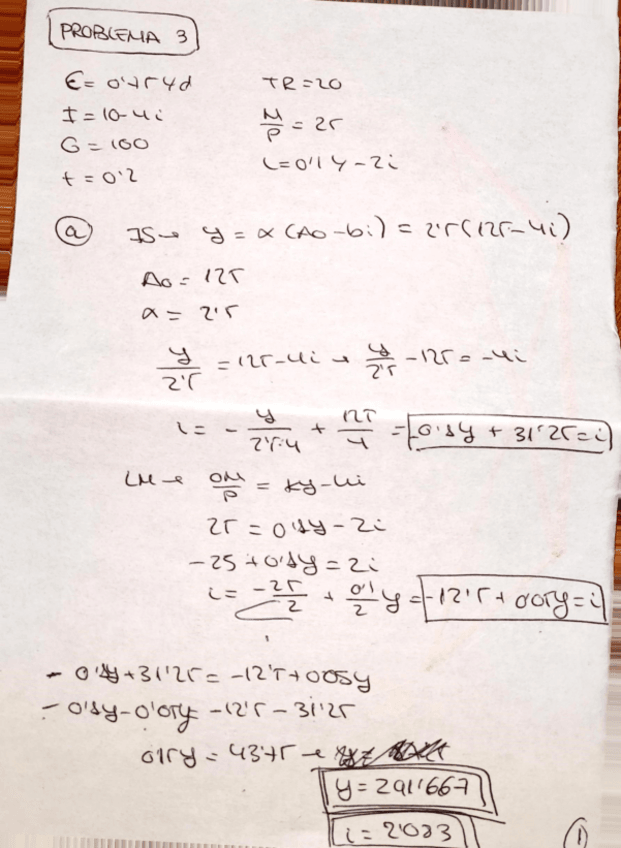 PROBLEMA 3
C = 0'75 Yd TR = 20
I = 10 - 4i M/P = 25
G = 100 L = 0'1 Y - 2i
t = 0'2
a IS → y = α (A0 - bi) = 2'5 (125 - 4i)
A0 = 125
α = 2'5
y/2'5 = 125 - 4i → y/2'5 - 125 = -4i
i = - y/2'5·4 + 125/4 = -0'1y + 31'25 = i
LM → M/P = ky - hi
25 = 0'1y - 2i
-25 + 0'1y = 2i
i = -25/2 + 0'1/2 y = -12'5 + 0'05y = i
- 0'1y + 31'25 = -12'5 + 0'05y
- 0'1y - 0'05y = -12'5 - 31'25
0'15y = 43'75 →
y = 291'667
i = 2'083
1